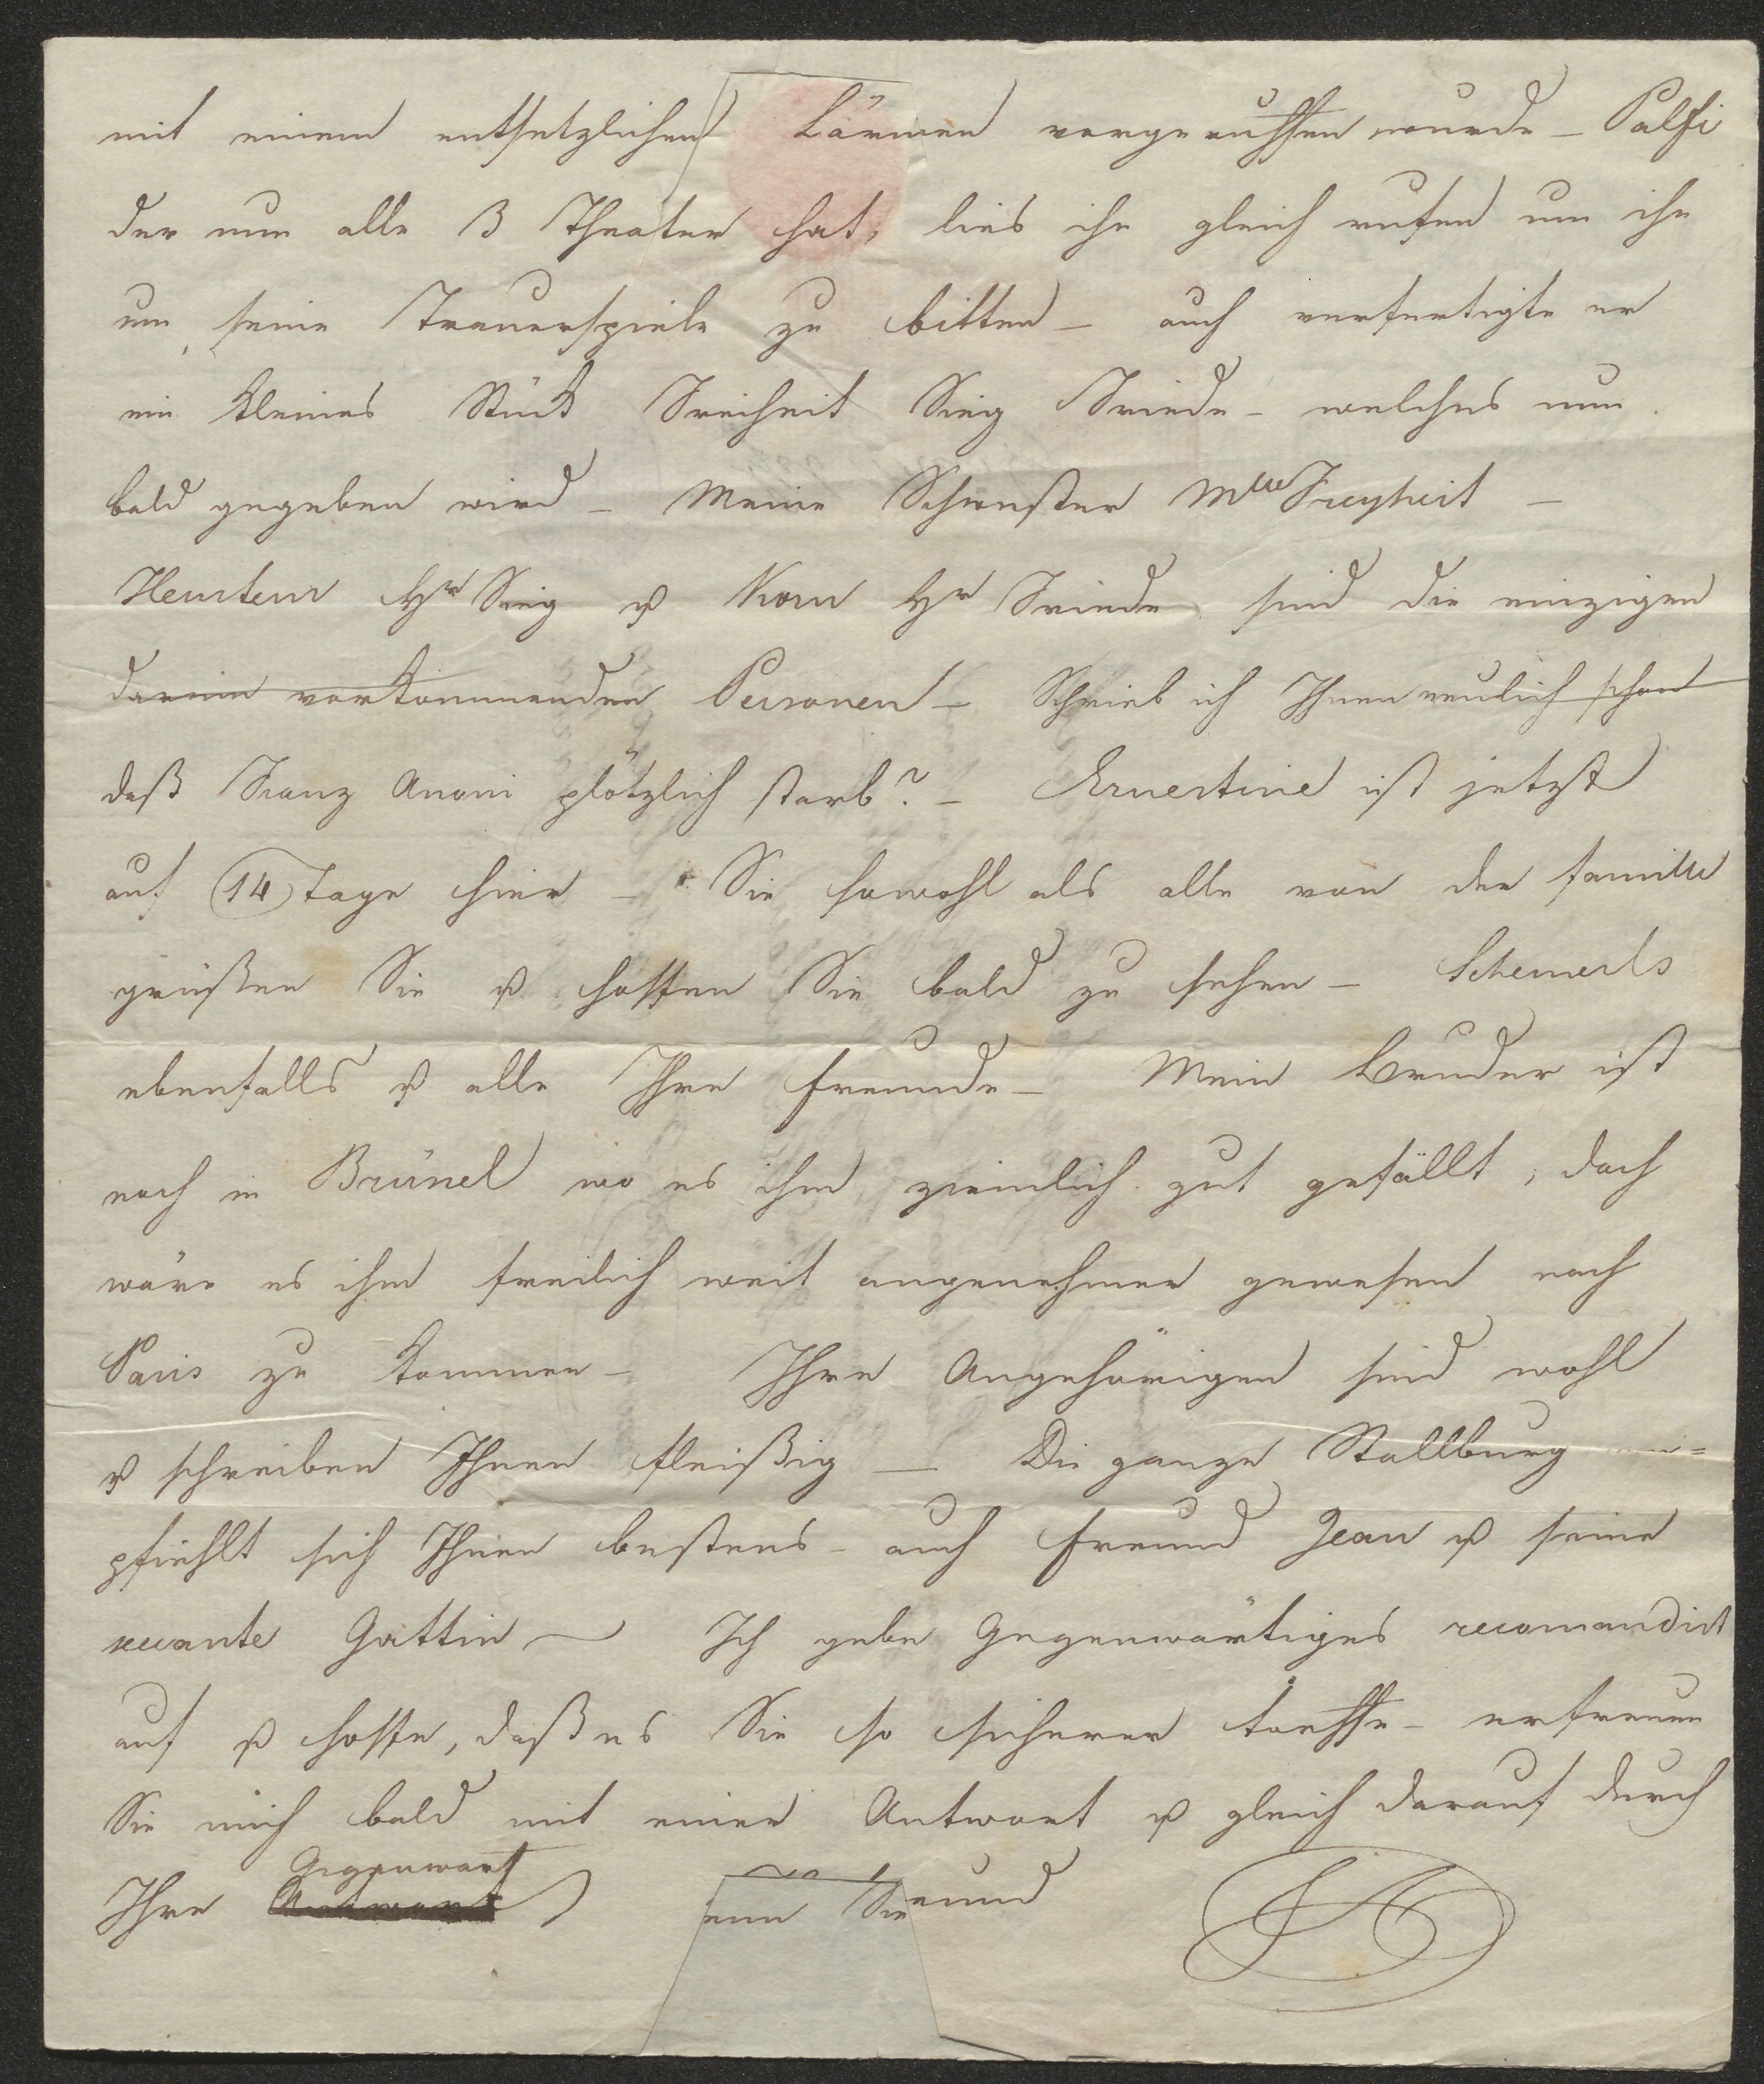 mit einem entsetzlichen Lärmen vorgeruffen wurde – Palfi
der nun alle 3 Theater hat, lies ihn gleich rufen um ihn
um seine Trauerspiele zu bitten – auch verfertigte er
ein kleines Stück Freiheit Sieg Friede – welches nun
bald gegeben wird – Meine Schwester Mlle Freyheit –
Heurteur Hr Sieg u Korn Hr Friede sind die einzigen
darinn vorkommenden Personen – Schrieb ich Ihnen neulich schon
daß Franz Anoni plötzlich starb? – Ernestine ist jetzt
auf 14 Tage hier – Sie sowohl als alle von der famille
grüßen Sie u hoffen Sie bald zu sehen – Schemerls
ebenfalls u alle Ihre Freunde – Mein Bruder ist
noch in Brünel wo es ihm ziemlich gut gefällt, doch
wäre es ihm freilich weit angenehmer gewesen nach
Paris zu kommen – Ihre Angehörigen sind wohl
u schreiben Ihnen fleißig — Die ganze Stallburg em=
pfiehlt sich Ihnen bestens – auch Freund Jean u seine
Gattin — Ich gebe Gegenwärtiges recomandirt
auf u hoffe, daß es Sie so sicherer treffe – erfreuen
Sie mich bald mit einer Antwort u gleich darauf durch
Ihre Gegenwart Freund